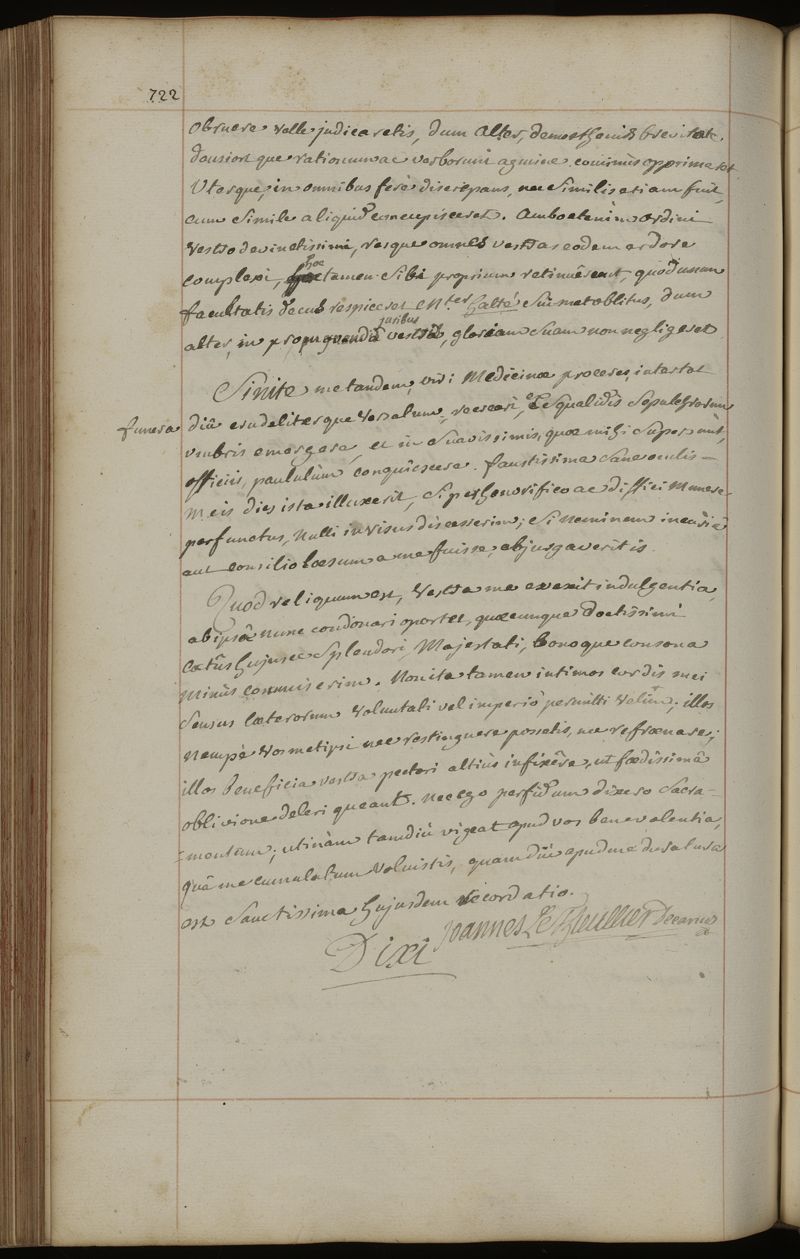 722
obruere velle judicaretis, dum alter, demosthenis brevitate,
densiori que rationum ac verborum agmine cominus opprimeret.
Uterque, in omnibus ferè discrepans, nec similis etiam fuit,
cum simile aliquid concupisceret. Ambo etenim ordini
vestro devinctissimi, resque omnes vestras eodem ardore
complexi, hoc tamen sibi proprium retinuêrunt, quòd unum
facultatis decus respiceret M.ter halté sui met oblitus, dum
alter, in propugnandis juribus vestris, gloriam suam non negligeret.
Sinite me tandem, viri Medicinæ proceres, intertot
funera
diù crudelitèrque versatum, &c squalidis sepulchrorum
umbris emergere, et in suavissimis, quæ mihi supersunt,
officiis, paululùm conquiescere. faustissima sane oculis
meis dies ista illuxerit, si perhonorifico ac diffici munere
perfunctus, nulli invisus discesserim; si neminem incuriâ
aut consilio læsum a me fuisse, abjurgaveritis.
Quod reliquum est, vestra me evexit indulgentia,
ab ipsâ nunc condonari oportet, quæcumque doctissimi
Cœtûs hujusce splendori, Majestati, bonoque consona
minùs commiserim. Non ita tamen intimos cordis mei
sensus cæterorum voluntati vel imperio permitti velim; illos
nempè vosmetipsi nec restinguere possetis, nec refrœnare;
illos beneficia vestra pectori altiùs infixêre, ut fœdissimâ
oblivione deleri queant. nec ego perfidum dixero sacra-
=mentum; utinàm tamdiù vigeat apud vos benevolentia,
quâ me cumulatum voluistis, quamdiù apud me duratura
est sanctissima hujusdem recordatio.
Dixi
Joannes Le Thieullier Decanus